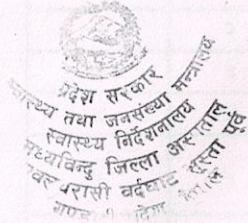 प्रदेश सरकार
स्वास्थ्य तथा जनसंख्या मन्त्रालय
स्वास्थ्य निर्देशनालय
मध्यविन्दु जिल्ला अस्पताल
परासी वर्दघाट सुस्ता पूर्व